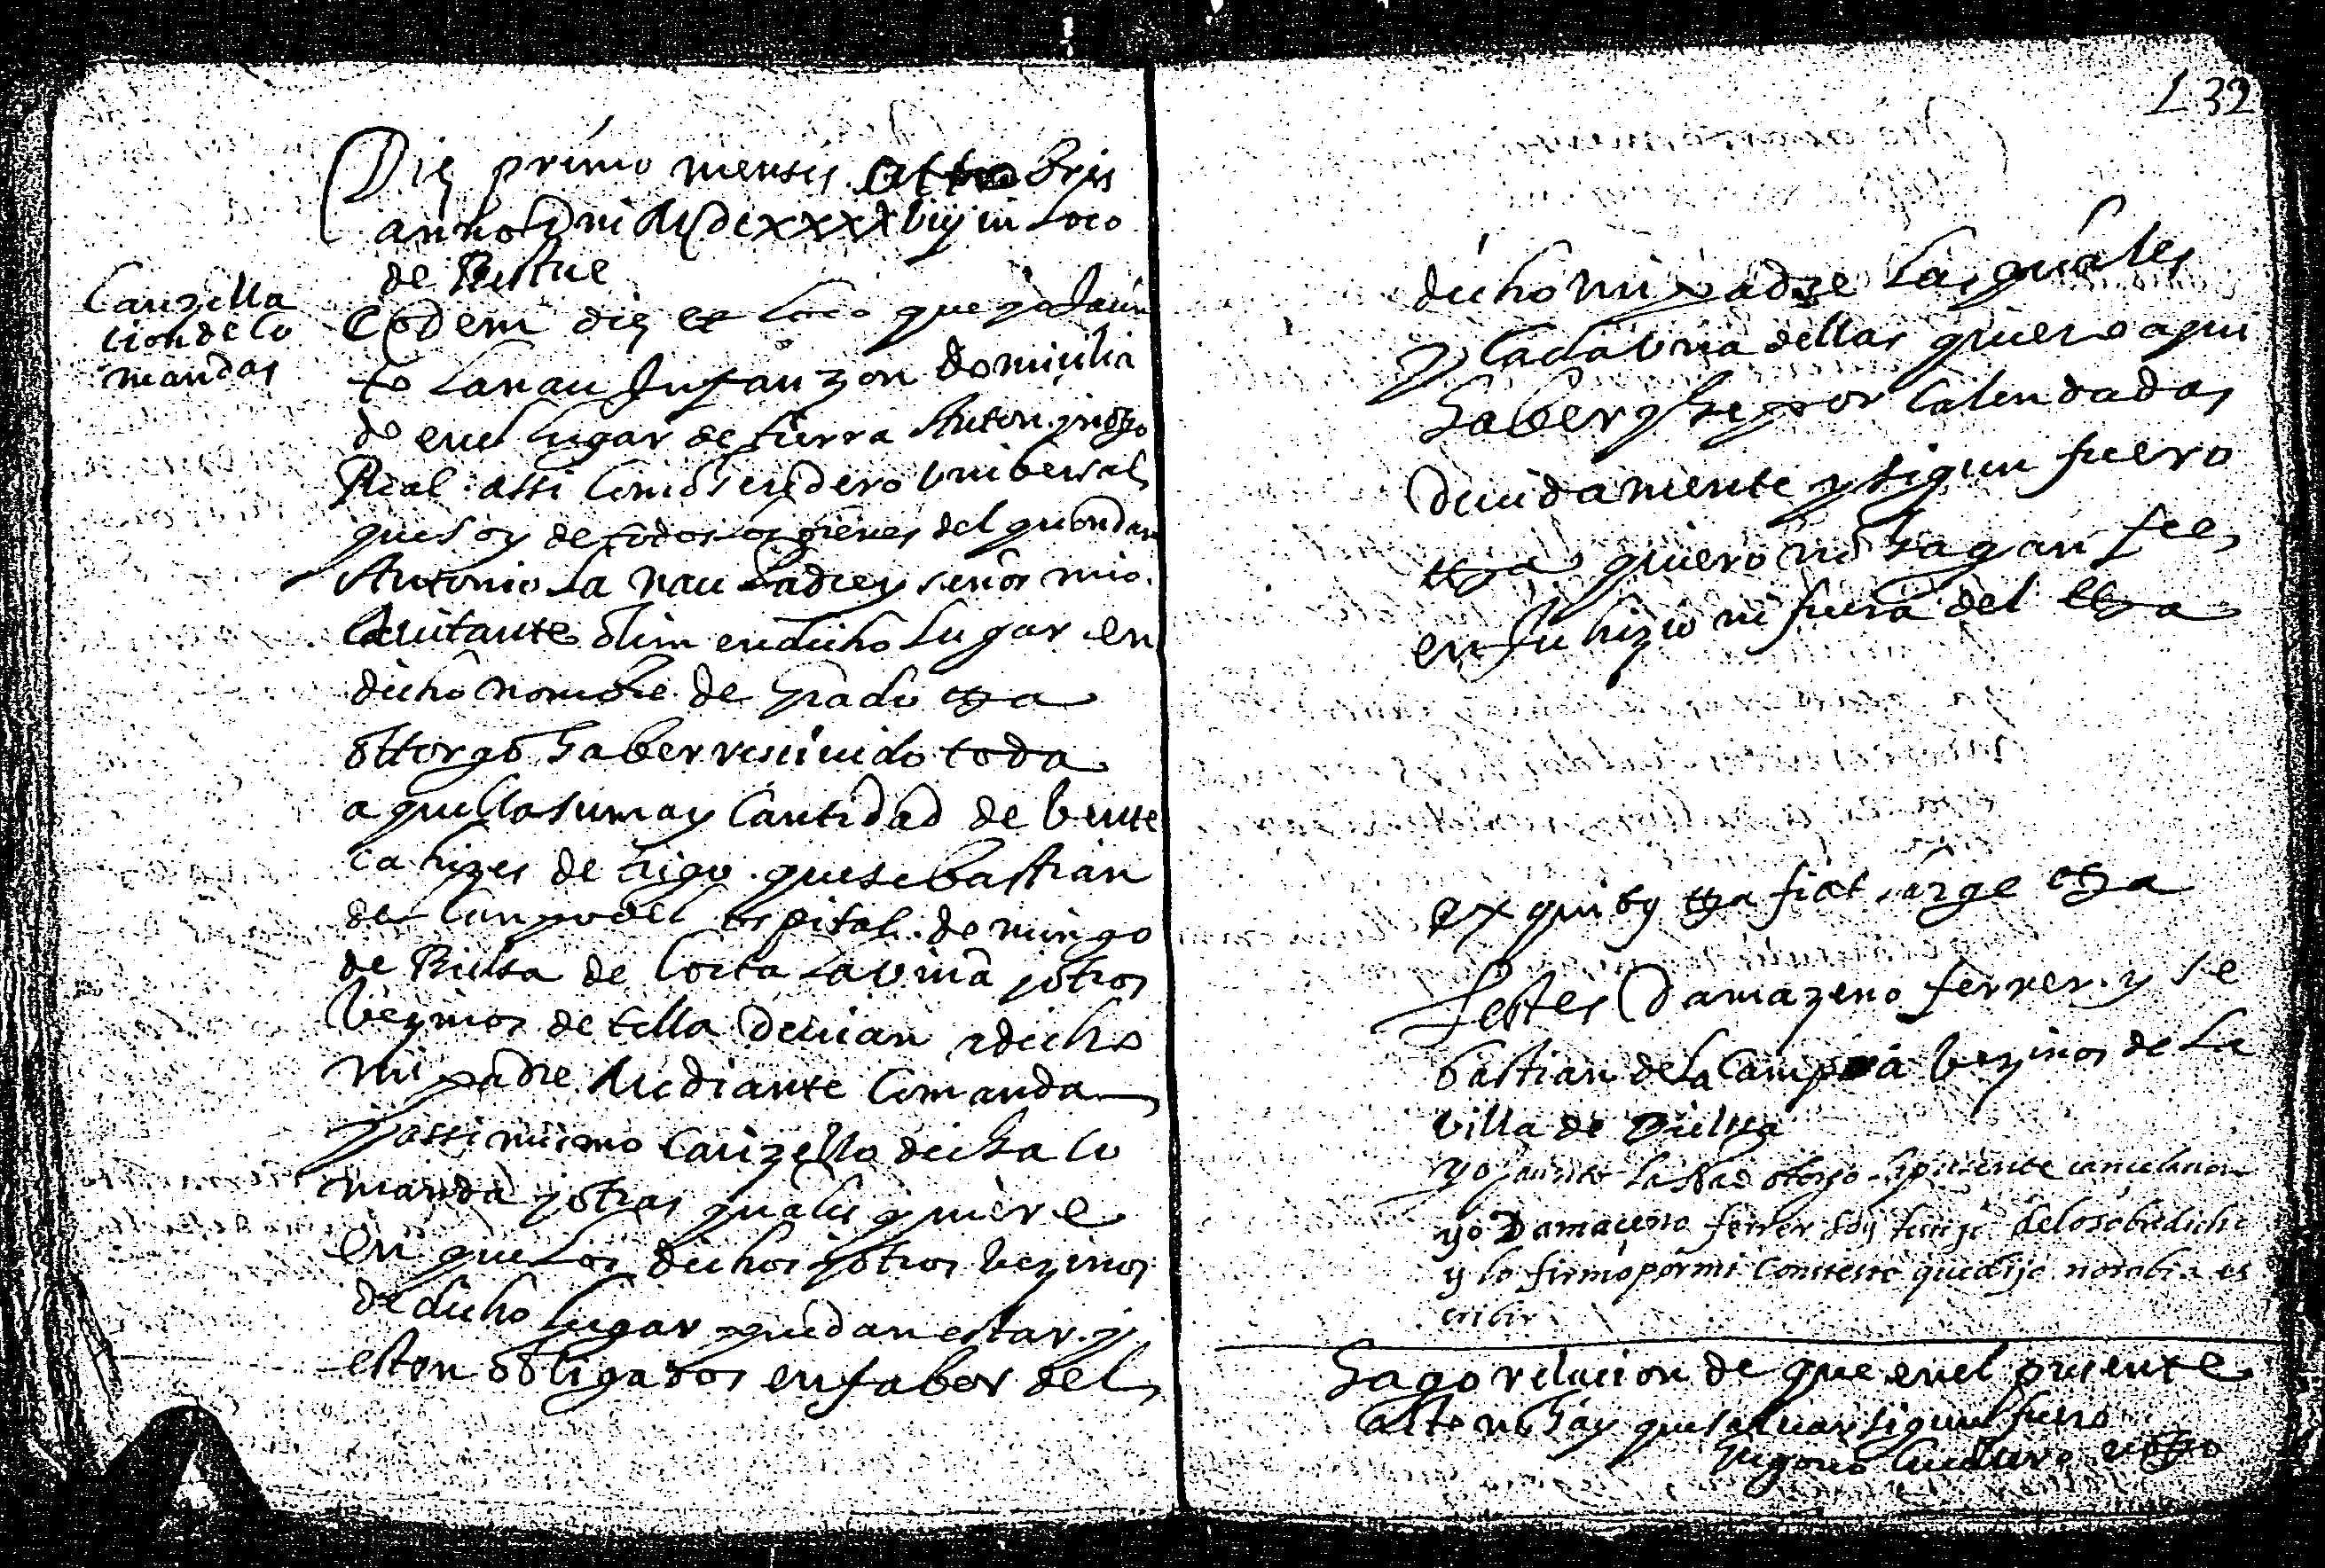 Die primo mensis octtobris
anno Dni MDcxxxxviij in loco
de Bestue
Canzella
cion de co
mandas
Eodem die et loco que yo Jacin
to Lanau Infanzon domicilia
do en el lugar de sierra
Real assi como heredero vnibersal
que soy de todos los bienes del quondam
Antonio La nau Padre y señor mio
havitante olim en dicho Lugar en
dicho nombre de grado etta
ottorgo haber reciuido toda
aquella suma y cantidad de bente
cahizes de trigo que sebastian
de Campo del espital domingo
de Bielsa de Costa La vina y otros
bezinos de tella deuian a dicho
mi padre Mediante Comanda
y assi mismo canzello dicha co
manda y otras quales quiere
en que Los dichos y otros bezinos
de dicho Lugar puedan estar y
esten obligados en fabor del
132
dicho mi padre Las quales
y cada vna dellas quiero aqui
haber y he por calendadas
deuidamente y sigun fuero
etta quiero no hagan fee
en Juhizio ni fuera del etta
ex quibus etta fiat large etta
Testes Damazeno ferrer y se
bastian de la Campa bezinos de La
villa de Bielsa
yo jacinto la Nao otorgo la presente cancelacion
yo Damaceno ferrer soy testigo de lo sobredicho
y lo firmo por mi conteste que dijo no sabia es
cribir
hago relacion de que en el presente
acto no hay que saluar sigun fuero